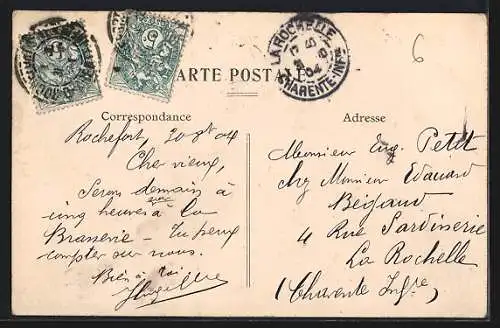 CARTE POSTALE
LA ROCHELLE
CHARENTE-INFRE
6
Correspondance
Rochefort, 20 04
Cher vieux,
Serons demain à
cinq heures à la
Brasserie – Tu peux
compter sur nous.
Bien à toi
Adresse
Monsieur Eug. Petit
chez Monsieur Edouard
Bégaud
4 Rue Sardinerie
La Rochelle
(Charente Infre)